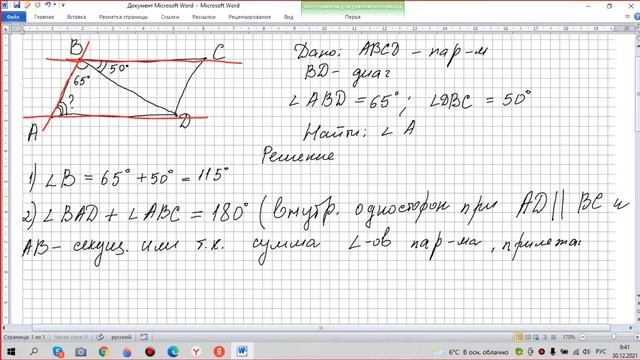 Документ Microsoft Word - Microsoft Word
Инструменты для рукописного ввода
Файл Главная Вставка Разметка страницы Ссылки Рассылки Рецензирование Вид Перья
B C
50°
65°
?
A D
Дано: ABCD - пар-м
BD - диаг
∠ABD = 65°; ∠DBC = 50°
Найти: ∠A
Решение
1) ∠B = 65° + 50° = 115°
2) ∠BAD + ∠ABC = 180° (внутр. односторон при AD || BC и
AB - секущ. или т.к. сумма ∠-ов пар-ма, прилежа
Страница: 1 из 1 Число слов: 0 русский 170%
6°C В осн. облачно РУС 9:41
30.12.2021